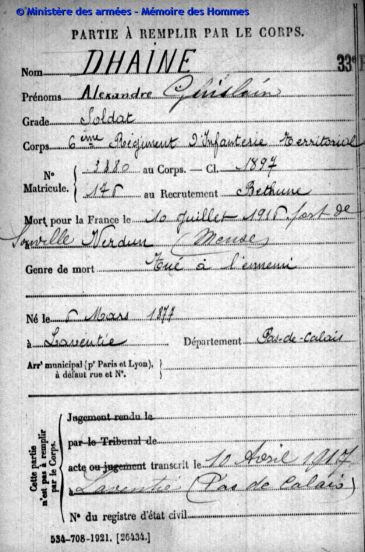 © Ministère des armées - Mémoire des Hommes
PARTIE À REMPLIR PAR LE CORPS.
Nom DHAINE 33e
Prénoms Alexandre Ghislain
Grade Soldat
Corps 6ème Régiment d'Infanterie Territorial
N° Matricule. { 3880 au Corps. — Cl. 1897
176 au Recrutement Béthune
Mort pour la France le 10 Juillet 1916 fort de
Souville Verdun (Meuse)
Genre de mort Tué à l'ennemi
Né le 6 Mars 1877
à Laventie Département Pas-de-Calais
Arrt municipal (pr Paris et Lyon), à défaut rue et N°. }
Cette partie n'est pas à remplir par le Corps.
Jugement rendu le
par le Tribunal de
acte ou jugement transcrit le 10 Avril 1917
à Laventie (Pas de Calais)
N° du registre d'état civil
534-708-1921. [26434.]